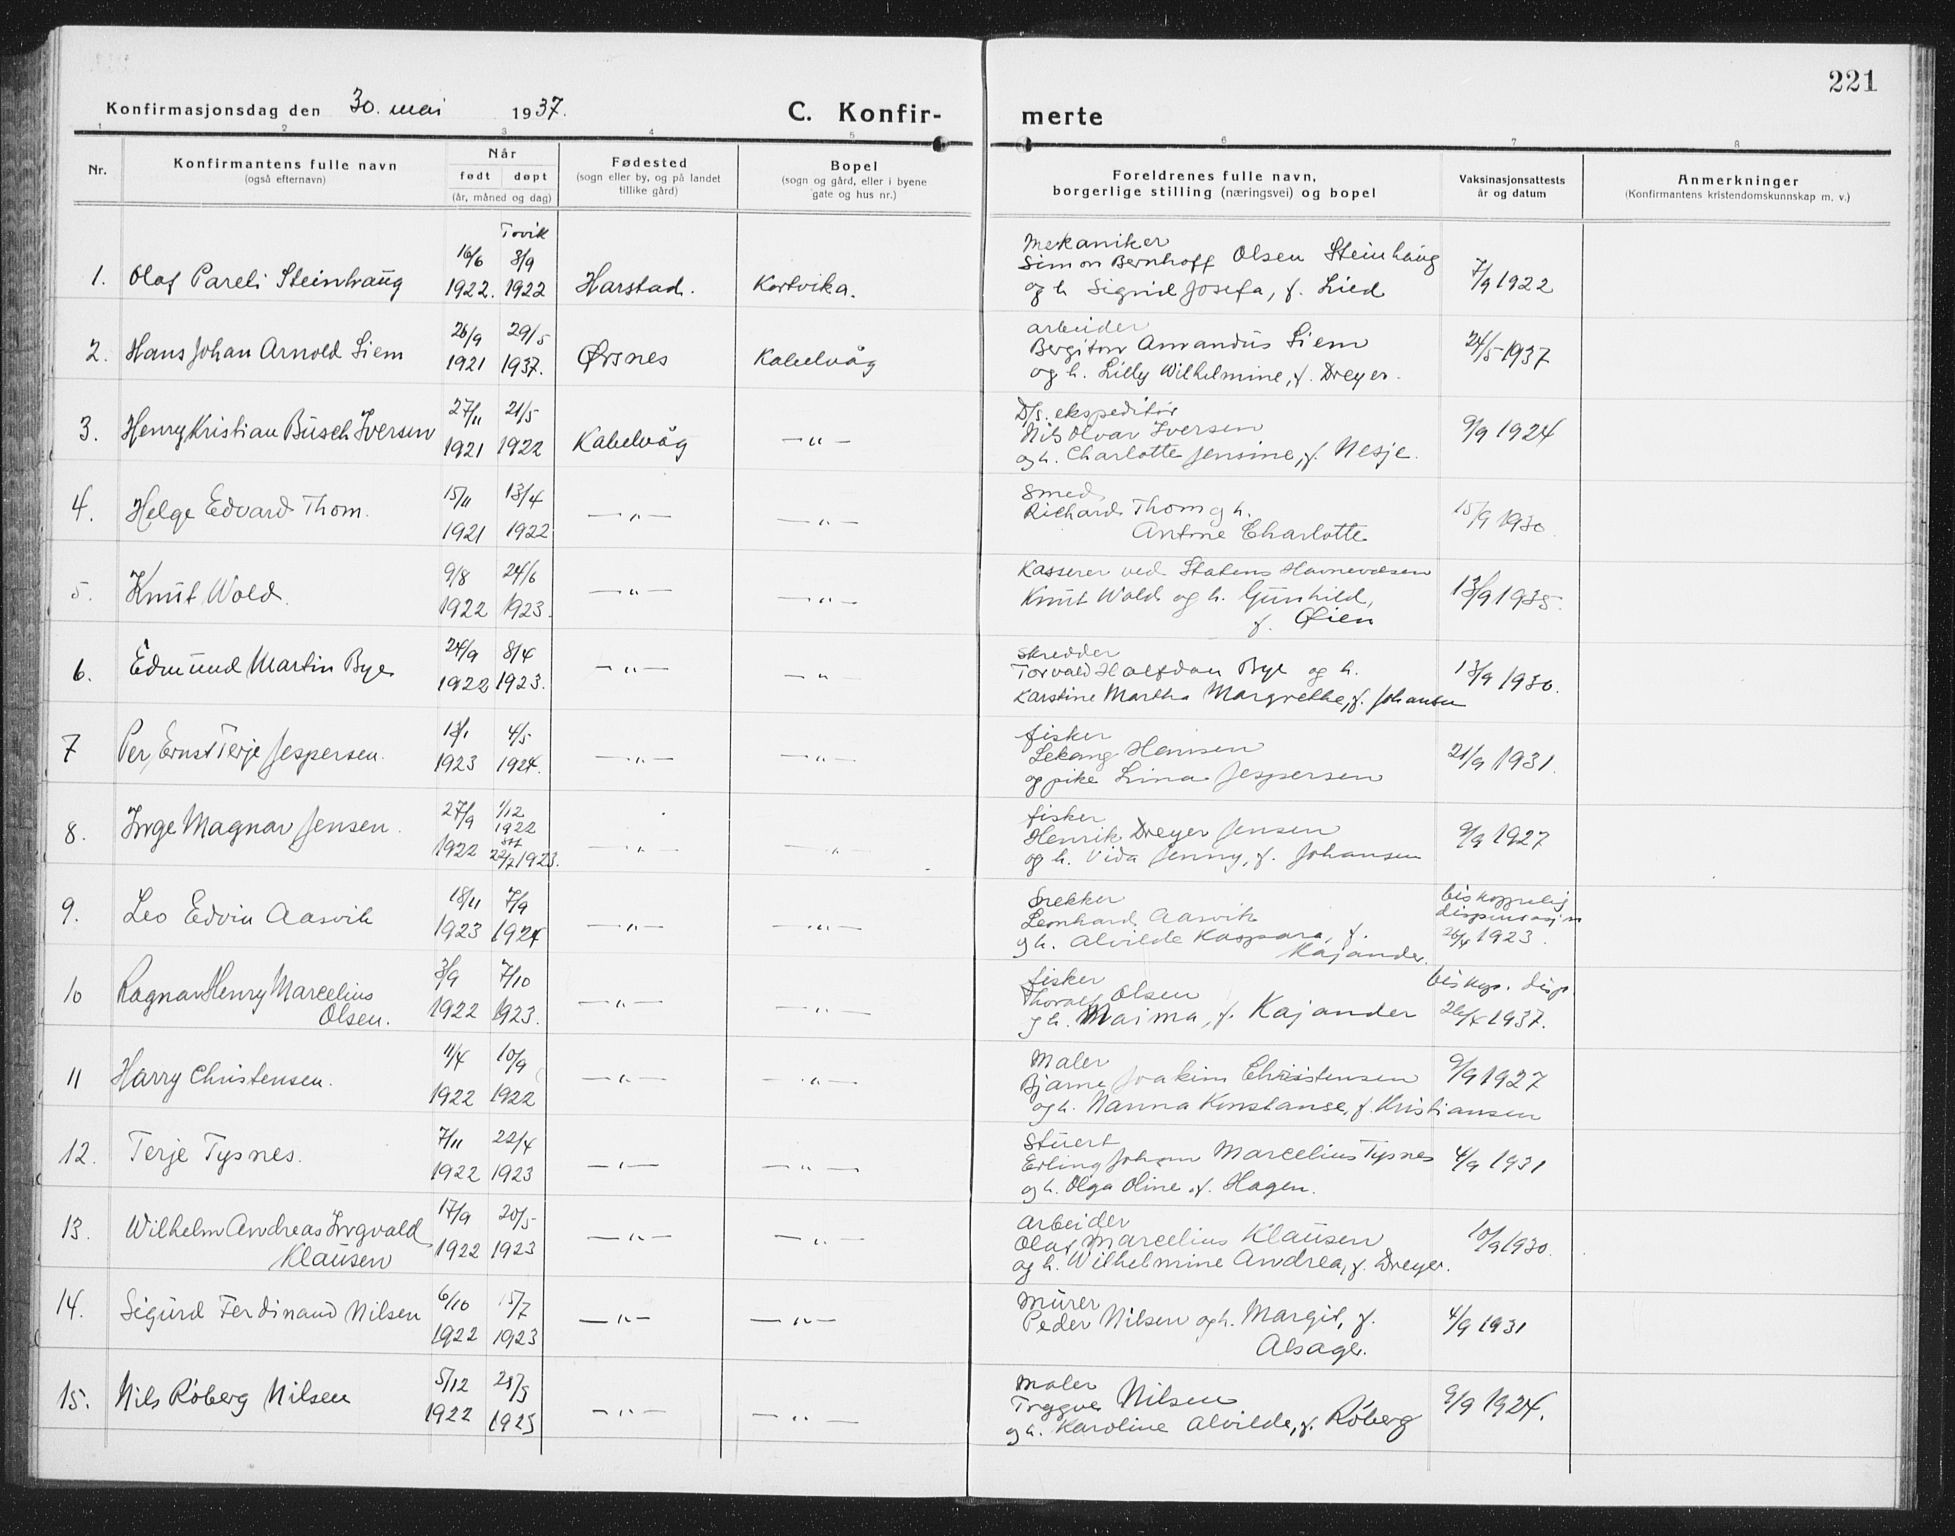 221
Konfirmasjonsdag den 30. mai 1937. C. Konfir- merte
1 2 3 4 5 6 7 8
Nr.
Konfirmantens fulle navn
(også efternavn)
Når
født døpt
(år, måned og dag)
Fødested
(sogn eller by, og på landet
tillike gård)
Bopel
(sogn og gård, eller i byene
gate og hus nr.)
Foreldrenes fulle navn,
borgerlige stilling (næringsvei) og bopel
Vaksinasjonsattests
år og datum
Anmerkninger
(Konfirmantens kristendomskunnskap m. v.)
Tovik
1. Olaf Pareli Steinhaug 16/6 1922. 8/9 1922 Harstad. Kortvika.
Mekaniker
Simon Bernhoff Olsen Steinhaug
og h. Sigrid Josefa, f. Lied
7/9 1922
2. Hans Johan Arnold Siem 26/9 1921 29/5 1937. Ørsnes Kabelvåg
arbeider
Amandus Siem
og h. Lilly Wilhelmine, f. Dreyer.
24/5 1937
3. Henry Kristian Busch Iversen 27/11 1921 21/5 1922 Kabelvåg —"—
D/s. ekspeditør
Nils Olvar Iversen
og h. Charlotte Jensine, f. Nesje.
9/9 1924
4. Helge Edvard Thom. 15/11 1921 13/4 1922 —"— —"—
Smed
Richard Thom og h.
Antine Charlotte
15/9 1930.
5. Knut Wold. 9/8 1922 24/6 1923. —"— —"—
Kasserer ved Statens Havnevesen
Knut Wold og h. Gunhild,
f. Øien
13/9 1935.
6. Edmund Martin Bye 24/9 1922 8/4 1923. —"— —"—
Skredder
Torvald Halfdan Bye og h.
Karstine Martha Margrethe, f. Johansen
13/9 1930.
7 Per Ernst Terje Jespersen. 13/1 1923 4/5 1924. —"— —"—
fisker
Lekang Hansen
og pike Lina Jespersen
21/9 1931.
8. Inge Magnar Jensen. 27/9 1922 1/12 1922
stf 22/7 1923. —"— —"—
fisker
Henrik Dreyer Jensen
og h. Vida Jenny, f. Johansen
9/9 1927
9. Leo Edvin Aasvik 18/11 1923 7/9 1924 —"— —"—
Snekker
Leonhard Aasvik
og h. Alvilde Kaspara, f.
Kajander.
biskoppelig
dispensasjon
26/4 1923.
10 Ragnar Henry Marcelius
Olsen. 3/9 1922 7/10 1923. —"— —"—
fisker
Thoralf Olsen
og h. Maima, f. Kajander
biskop. disp.
26/4 1937.
11 Harry Christensen. 11/4 1922 10/9 1922 —"— —"—
Maler
Bjarne Joakim Christensen
og h. Nanna Konstanse, f. Kristiansen
9/9 1927
12. Terje Tysnes. 7/11 1922 22/4 1923 —"— —"—
Stuert
Erling Johan Marcelius Tysnes
og h. Olga Oline f. Hagen.
4/9 1931
13. Wilhelm Andreas Ingvald
Klausen 17/9 1922 20/5 1923 —"— —"—
arbeider
Olaf Marcelius Klausen
og h. Wilhelmine Andrea, f. Dreyer.
10/9 1930.
14. Sigurd Ferdinand Nilsen 6/10 1922 15/7 1923 —"— —"—
Murer
Peder Nilsen og h. Margit, f.
Alsager.
4/9 1931
15. Nils Røberg Nilsen 5/12 1922 1923 —"— —"—
Maler
Tryggve Nilsen
og h. Karoline Alvilde, f. Røberg
9/9 1924.